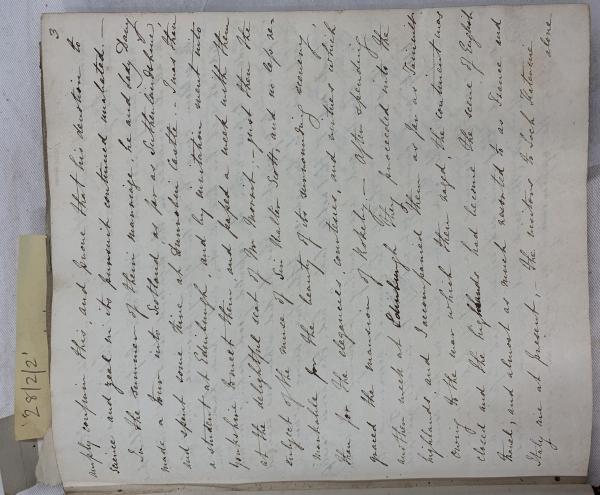 3
amply confirm this, and prove that his devotion to
science and zeal in its pursuit continued unabated. —
In the summer of their marriage, he and Lady Davy
made a tour into Scotland as far as Sutherlandshire,
and spent some time at Dunrobin Castle. — I was then
a student at Edinburgh and by invitation went into
Yorkshire to meet them, and passed a week with them
at the delightful seat of Mr Morritt, — just then the
subject of the muse of Sir Walter Scott, and no less re-
markable for the beauty of its surrounding scenery,
than for the elegancies, comforts, and virtues which
graced the mansion of Rokeby. — After spending
another week at Edinburgh they proceeded into the
highlands and I accompanied them as far as
owing to the war which then raged, the continent was
closed and the highlands had become the scene of English
travel, and almost as much resorted to as France and
Italy are at present, — The visitors to Loch Katrine
alone
'28/2/2'